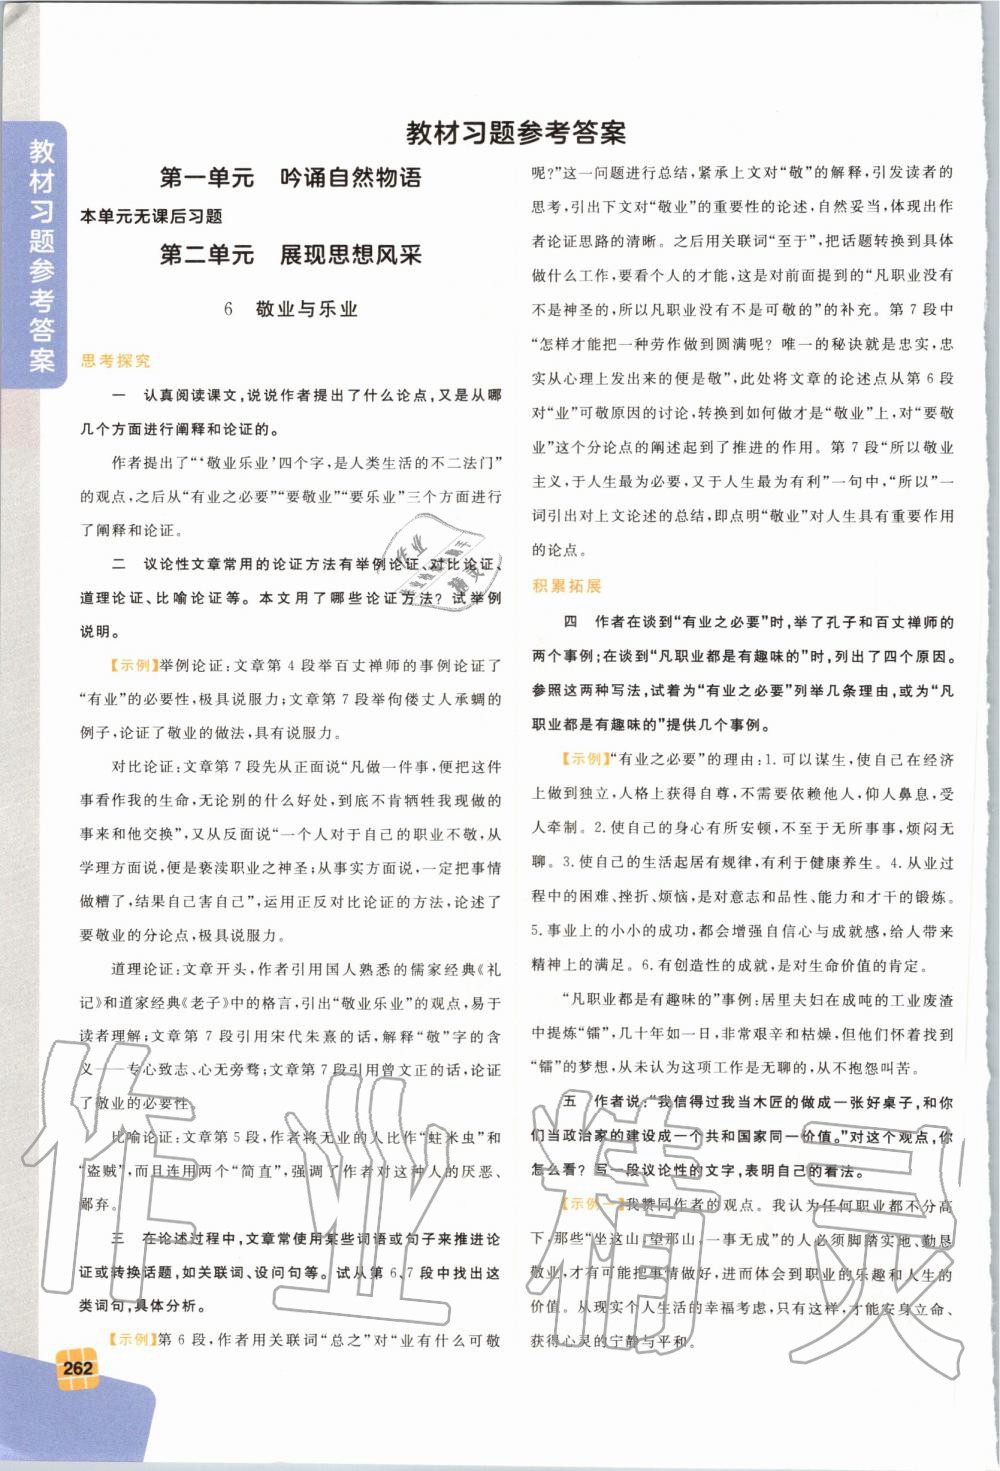 教材习题参考答案
教材习题参考答案
第一单元 吟诵自然物语
本单元无课后习题
第二单元 展现思想风采
6 敬业与乐业
思考探究
一 认真阅读课文,说说作者提出了什么论点,又是从哪
几个方面进行阐释和论证的。
作者提出了“‘敬业乐业’四个字,是人类生活的不二法门”
的观点,之后从“有业之必要”“要敬业”“要乐业”三个方面进行
了阐释和论证。
二 议论性文章常用的论证方法有举例论证、对比论证、
道理论证、比喻论证等。本文用了哪些论证方法?试举例
说明。
【示例】举例论证:文章第4段举百丈禅师的事例论证了
“有业”的必要性,极具说服力;文章第7段举佝偻丈人承蜩的
例子,论证了敬业的做法,具有说服力。
对比论证:文章第7段先从正面说“凡做一件事,便把这件
事看作我的生命,无论别的什么好处,到底不肯牺牲我现做的
事来和他交换”,又从反面说“一个人对于自己的职业不敬,从
学理方面说,便是亵渎职业之神圣;从事实方面说,一定把事情
做糟了,结果自己害自己”,运用正反对比论证的方法,论述了
要敬业的分论点,极具说服力。
道理论证:文章开头,作者引用国人熟悉的儒家经典《礼
记》和道家经典《老子》中的格言,引出“敬业乐业”的观点,易于
读者理解;文章第7段引用宋代朱熹的话,解释“敬”字的含
义——专心致志、心无旁骛;文章第7段引用曾文正的话,论证
了敬业的必要性。
比喻论证:文章第5段,作者将无业的人比作“蛀米虫”和
“盗贼”,而且连用两个“简直”,强调了作者对这种人的厌恶、
鄙弃。
三 在论述过程中,文章常使用某些词语或句子来推进论
证或转换话题,如关联词、设问句等。试从第6、7段中找出这
类词句,具体分析。
【示例】第6段,作者用关联词“总之”对“业有什么可敬
呢?”这一问题进行总结,紧承上文对“敬”的解释,引发读者的
思考,引出下文对“敬业”的重要性的论述,自然妥当,体现出作
者论证思路的清晰。之后用关联词“至于”,把话题转换到具体
做什么工作,要看个人的才能,这是对前面提到的“凡职业没有
不是神圣的,所以凡职业没有不是可敬的”的补充。第7段中
“怎样才能把一种劳作做到圆满呢?唯一的秘诀就是忠实,忠
实从心理上发出来的便是敬”,此处将文章的论述点从第6段
对“业”可敬原因的讨论,转换到如何做才是“敬业”上,对“要敬
业”这个分论点的阐述起到了推进的作用。第7段“所以敬业
主义,于人生最为必要,又于人生最为有利”一句中,“所以”一
词引出对上文论述的总结,即点明“敬业”对人生具有重要作用
的论点。
积累拓展
四 作者在谈到“有业之必要”时,举了孔子和百丈禅师的
两个事例;在谈到“凡职业都是有趣味的”时,列出了四个原因。
参照这两种写法,试着为“有业之必要”列举几条理由,或为“凡
职业都是有趣味的”提供几个事例。
【示例】“有业之必要”的理由:1.可以谋生,使自己在经济
上做到独立,人格上获得自尊,不需要依赖他人,仰人鼻息,受
人牵制。2.使自己的身心有所安顿,不至于无所事事,烦闷无
聊。3.使自己的生活起居有规律,有利于健康养生。4.从业过
程中的困难、挫折、烦恼,是对意志和品性、能力和才干的锻炼。
5.事业上的小小的成功,都会增强自信心与成就感,给人带来
精神上的满足。6.有创造性的成就,是对生命价值的肯定。
“凡职业都是有趣味的”事例:居里夫妇在成吨的工业废渣
中提炼“镭”,几十年如一日,非常艰辛和枯燥,但他们怀着发现
“镭”的梦想,从未认为这项工作是无聊的,从不抱怨叫苦。
五 作者说:“我信得过我当木匠的做成一张好桌子,和你
们当政治家的建设成一个共和国家同一价值。”对这个观点,你
怎么看?写一段议论性的文字,表明自己的看法。
【示例一】我赞同作者的观点。我认为任何职业都不分高
下,那些“坐这山,望那山,一事无成”的人必须脚踏实地、勤恳
敬业,才有可能把事情做好,进而体会到职业的乐趣和人生的
价值。从现实个人生活的幸福考虑,只有这样,才能安身立命、
获得心灵的宁静与平和。
262
作业精灵